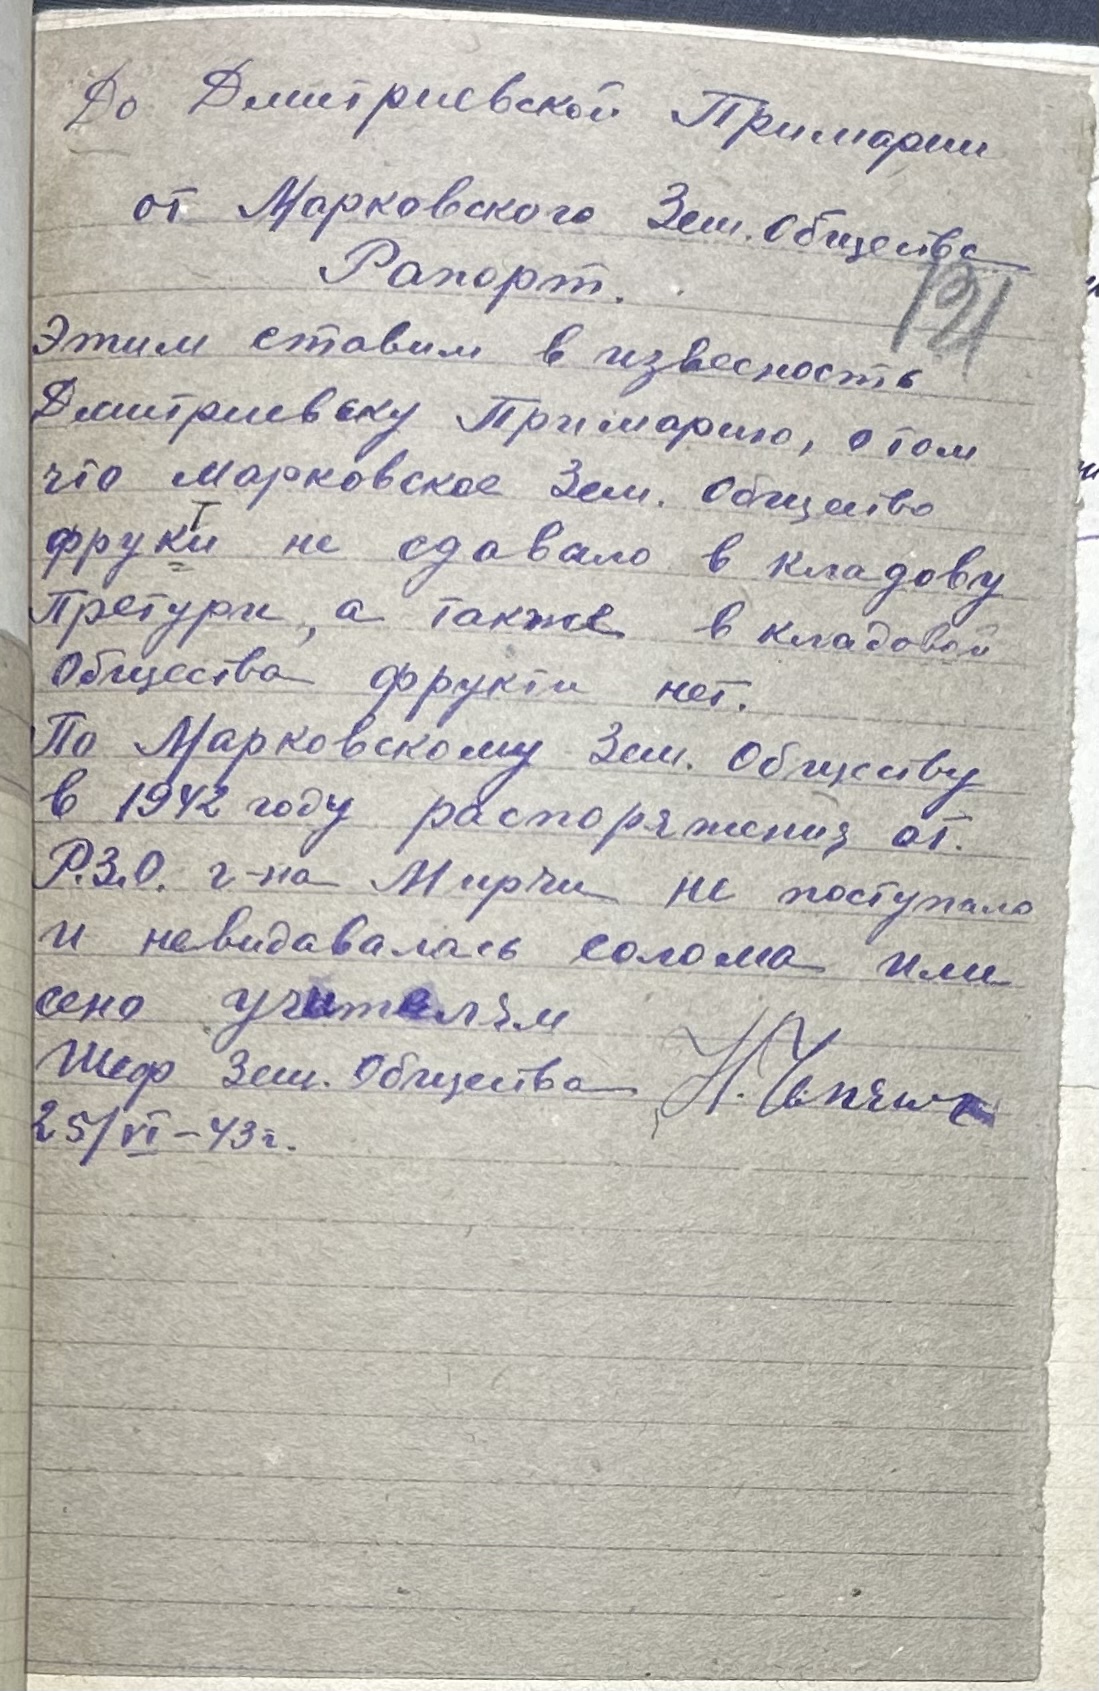 До Дмитриевской Примарии
от Марковского Зем. Общества
Рапорт.
121
Этим ставим в извесность
Дмитриевску Примарию, о том
что Марковское Зем. Общество
фрукти не сдавало в кладову
Претури, а также в кладовой
Общества фрукти нет.
По Марковскому Зем. Обществу
в 1942 году распоряжения от
Р.З.О. г-на Мирчи не поступало
и невидавалась солома или
сено учителям
Шеф Зем. Общества Н.
25/VI-43г.